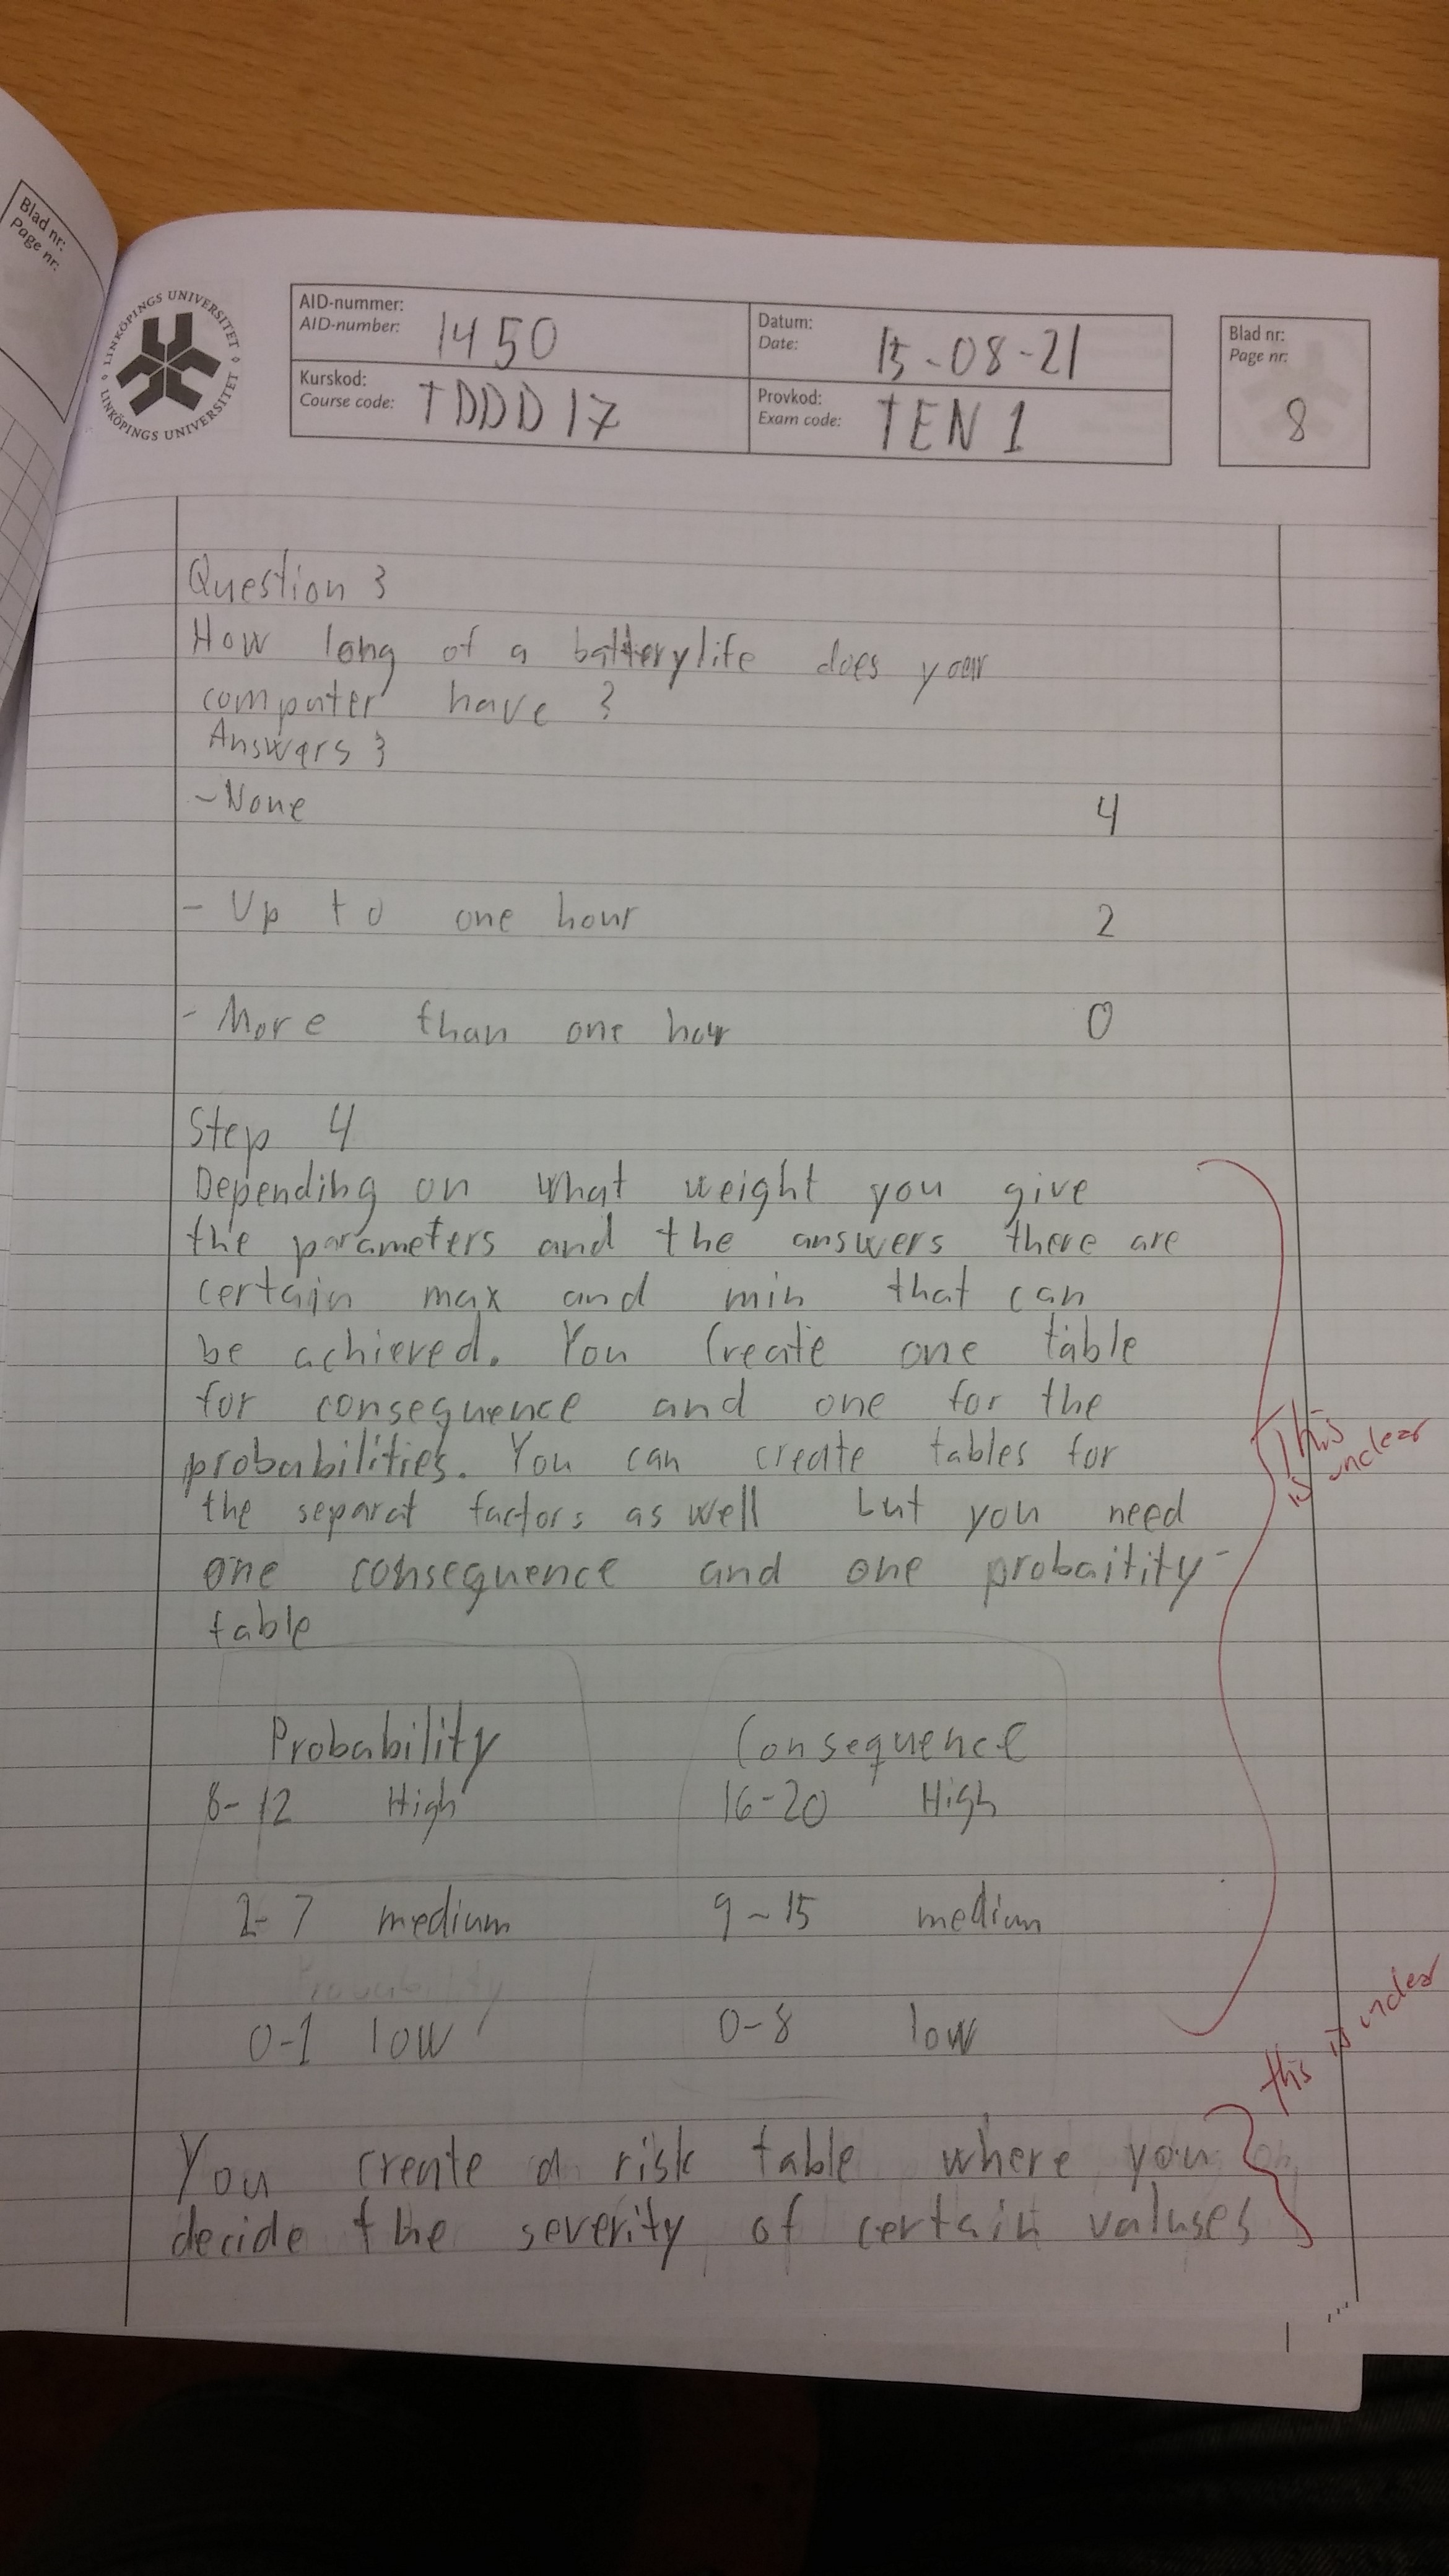 Blad nr:
Page nr:
LINKÖPINGS UNIVERSITET
LINKÖPINGS UNIVERSITET
AID-nummer:
AID-number: 1450
Datum:
Date: 15-08-21
Blad nr:
Page nr:
8
Kurskod:
Course code: TDDD17
Provkod:
Exam code: TEN 1
Question 3
How long of a batterylife does your
computer have ?
Answers :
- None 4
- Up to one hour 2
- More than one hour 0
Step 4
Depending on what weight you give
the parameters and the answers there are
certain max and min that can
be achieved. You create one table
for consequence and one for the
probabilities. You can create tables for
the separat factors as well but you need
one consequence and one probaitity-
table
This
is unclear
Probability Consequence
8-12 High 16-20 High
2-7 medium 9-15 medium
Probability
0-1 low 0-8 low
this is unclear
You create a risk table where you
decide the severity of certain valuses